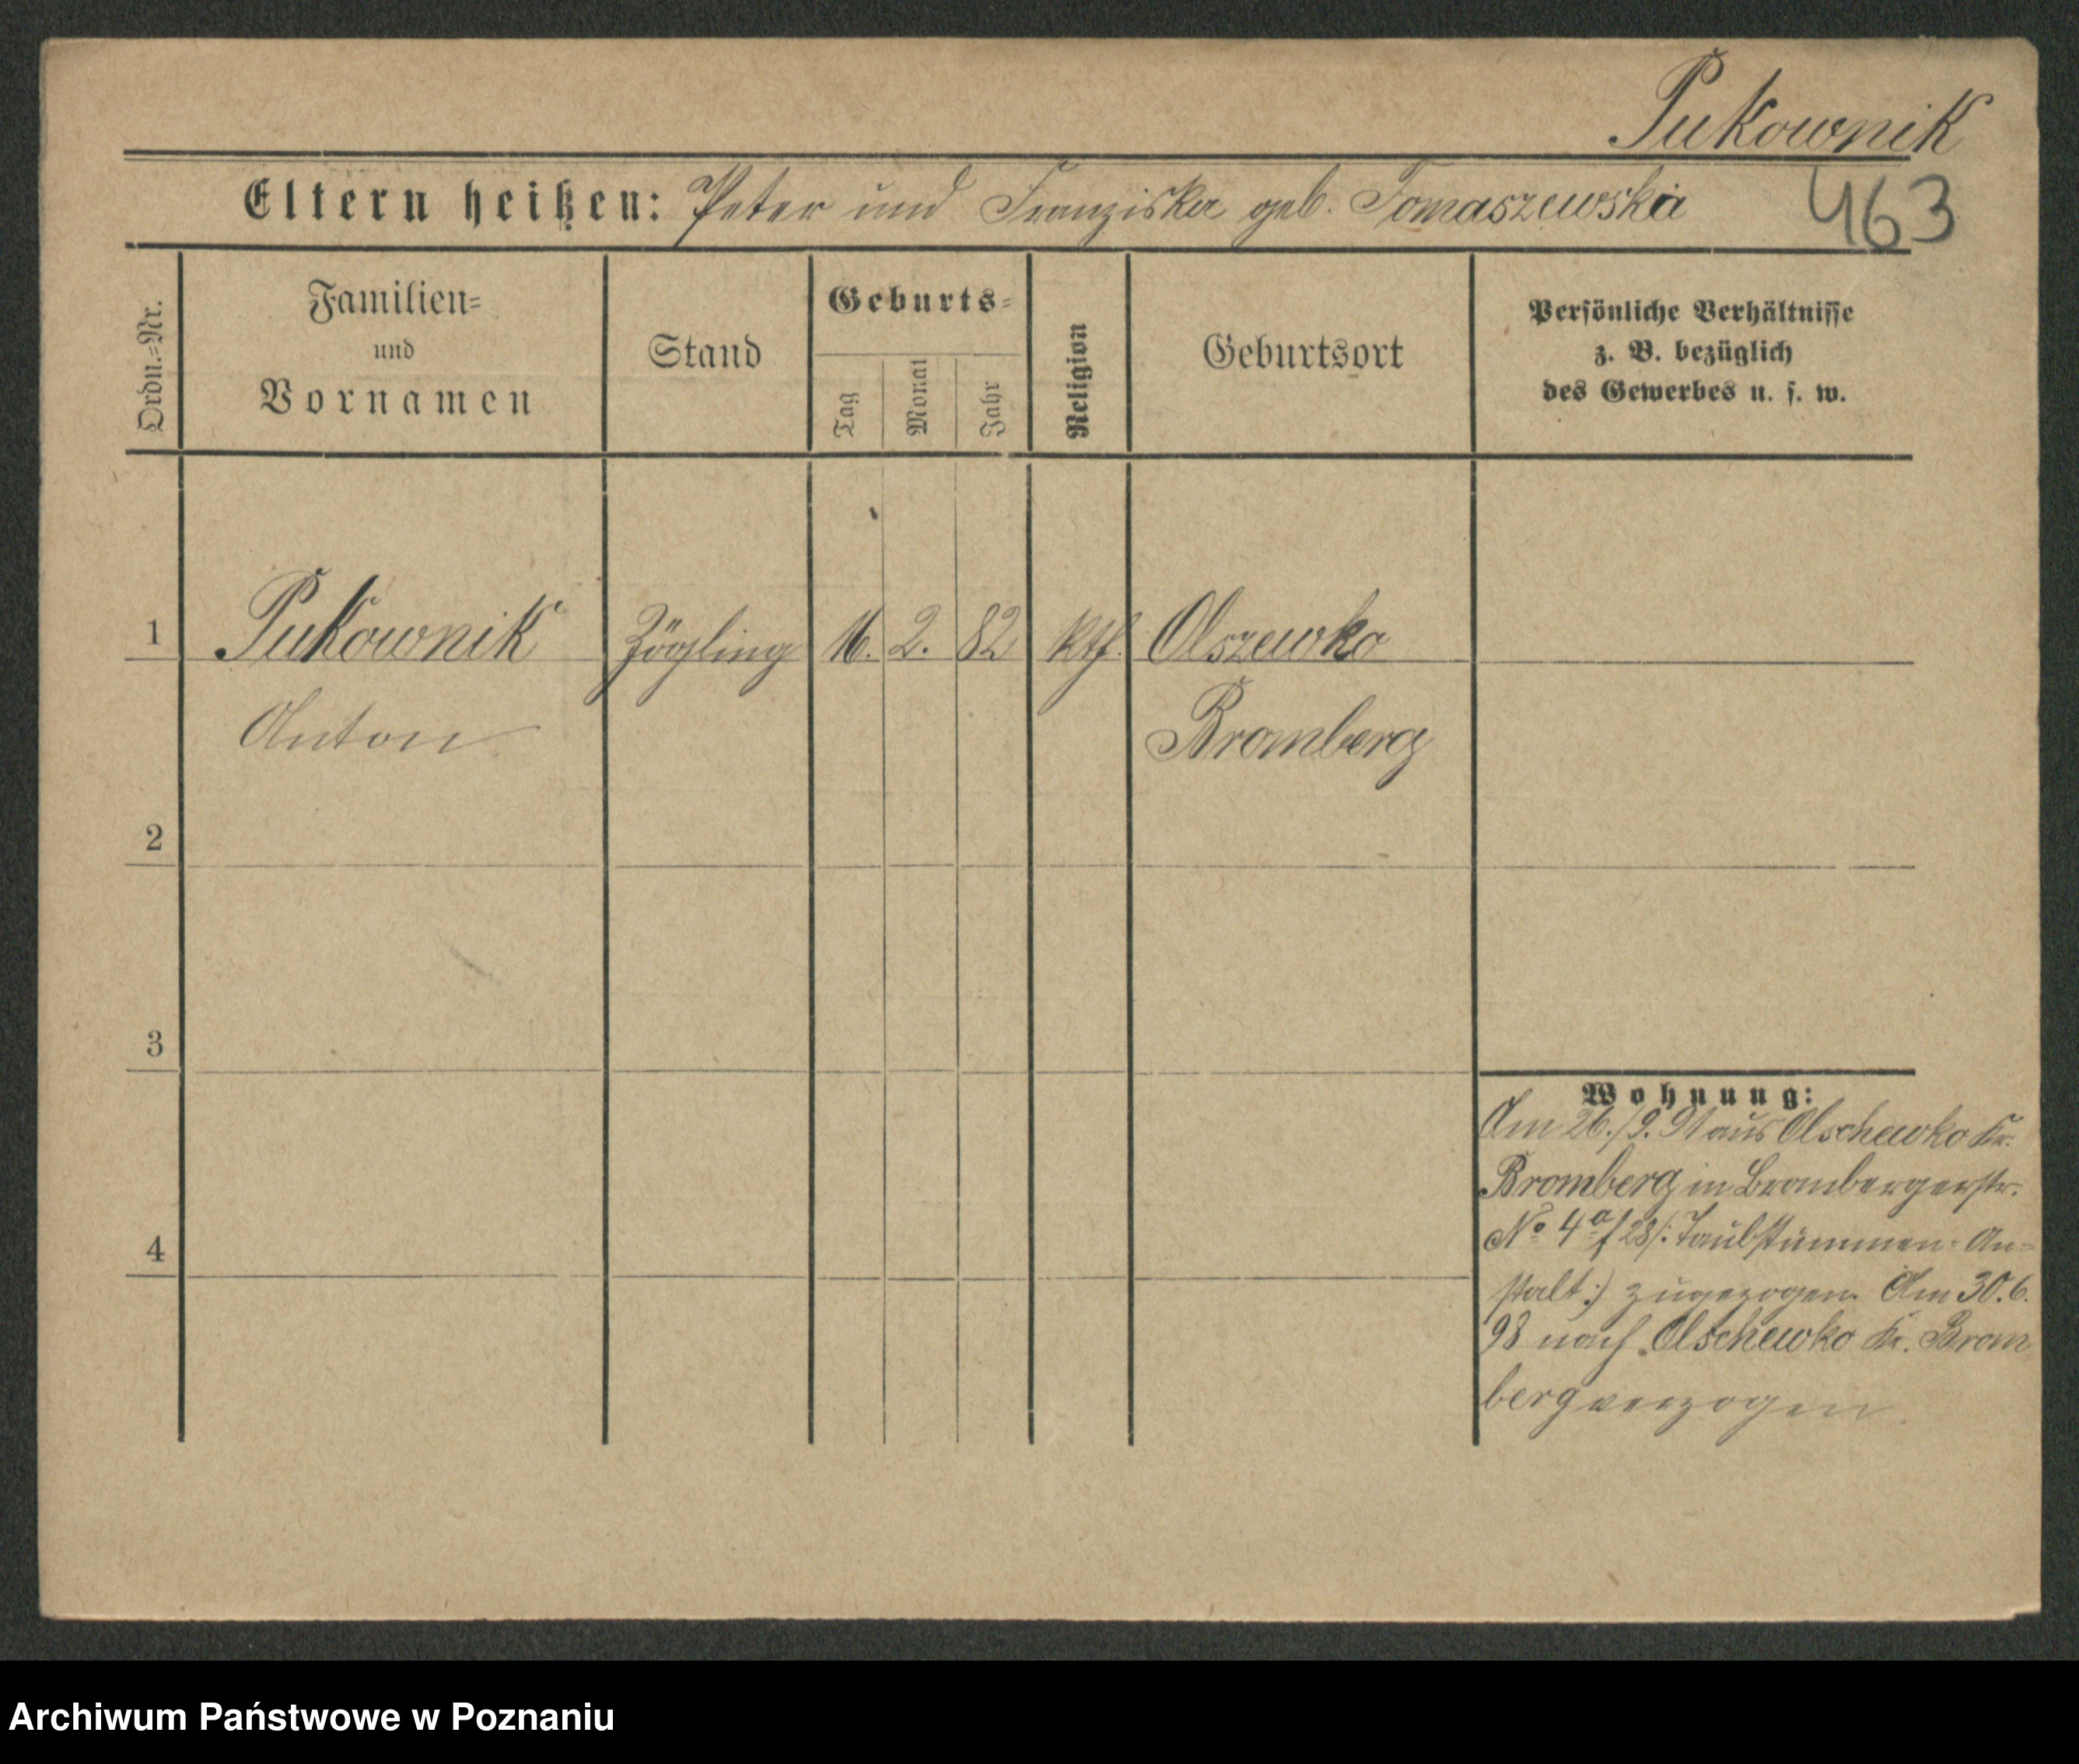 Pukownik
Eltern heißen: Peter und Franziska geb. Tomaszewska 463
Ordn.=Nr.
Familien=
und
Vornamen
Stand
Geburts=
Tag
Monat
Jahr
Religion
Geburtsort
Persönliche Verhältnisse
z. B. bezüglich
des Gewerbes u. s. w.
1 Pukownik Zögling 16. 2. 82 kth. Olszewko
Anton Bromberg
2
3
4
Wohnung:
Am 26./9. 91 aus Olschewko Kr.
Bromberg in Brombergerstr.
No 4a/28 /: Taubstummen-An=
stalt :/ zugezogen. Am 30.6.
98 nach Olschewko Kr. Brom
berg verzogen.
Archiwum Państwowe w Poznaniu